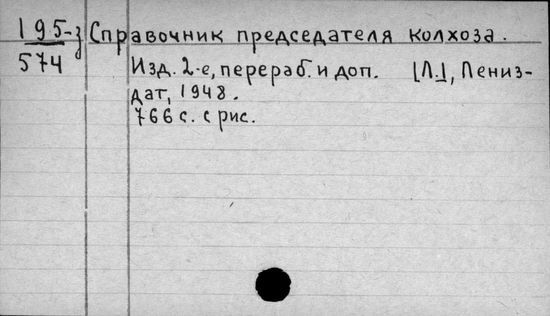 195-3 Справочник председателя колхоза.
574
Изд. 2-е, перераб. и доп. [Л.], Лениз-
дат, 1948.
766 с. с рис.